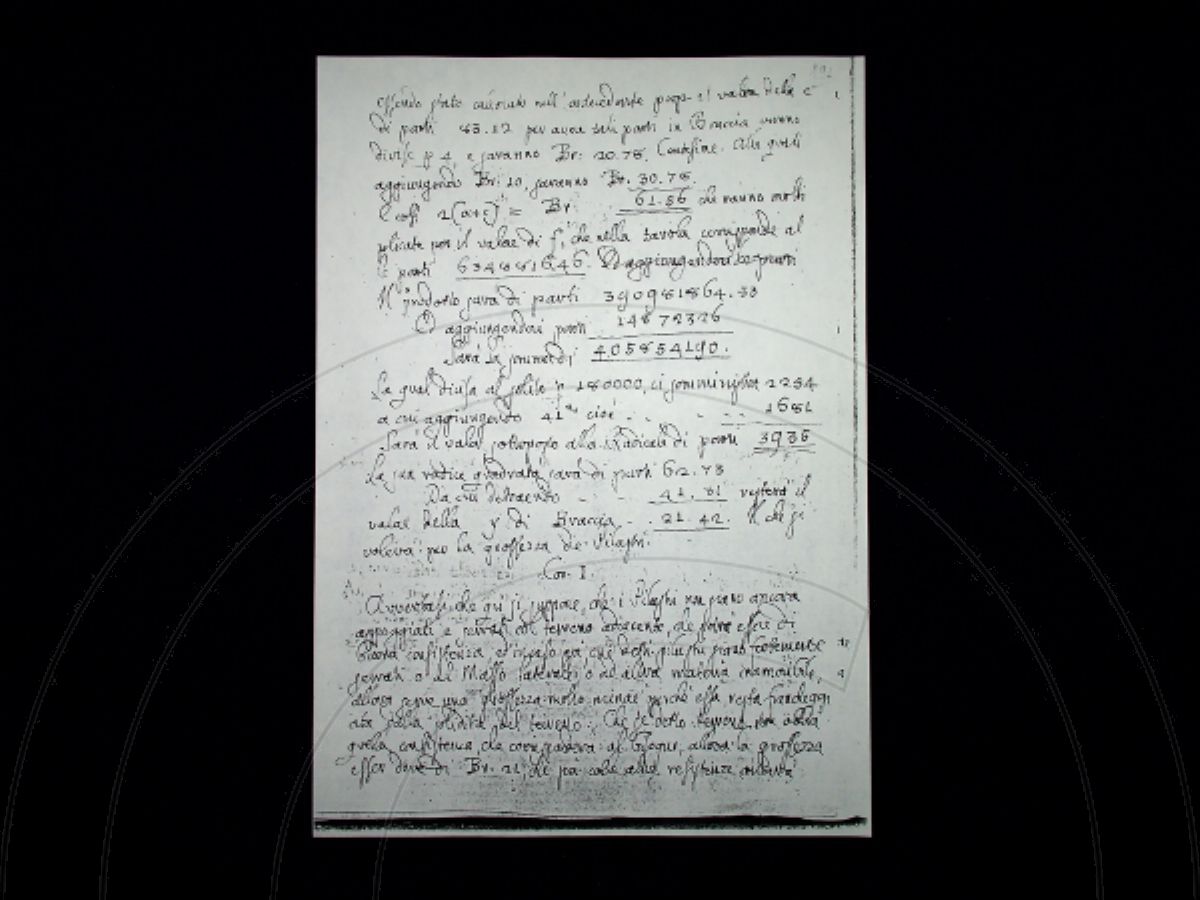 Essendo stato calcolato nell' antecedente prop. il valore della c
di parti 83.12 per avere tali parti in Braccia vanno
divise p 4, e saranno Br: 20.78. Centesime. Alle quali
aggiungendo Br: 10, saranno Br. 30.78.
E così 2(a+c) = Br. 61.56 che vanno molti
plicate per il valore di f, che nella tavola corrisponde al
parti 634881646.
Il prodotto sarà di parti 390981864.33
Ed aggiungendovi parti 14872326
Sarà la somma di 405854190.
La qual divisa al solito p 180000, ci somministra 2254
a cui aggiungendo 41 cioè 1681
Sarà il valor sottoposto alla Radicale di parti 3935
La sua radice quadrata sarà di parti 62.73
Da cui detraendo 41.31 resterà il
valor della y di Braccia 21.42. Il che si
voleva per la grossezza de Pilastri.
Cor. I.
Avvertasi che qui si suppone, che i Pilastri non siano ancora
appoggiati e serrati col terreno adiacente, che potrà essere di
buona consistenza, ed in caso che detti pilastri siano fortemente
serrati o al Masso laterale, o ad altra materia inamovibile,
allora serve una grossezza molto minore perchè essa resta
dalla solidità del terreno. Che se detto terreno non abbia
quella consistenza, che corrisponda al bisogno, allora la grossezza
esser deve di Br. 21, che fa colle altre resistenze